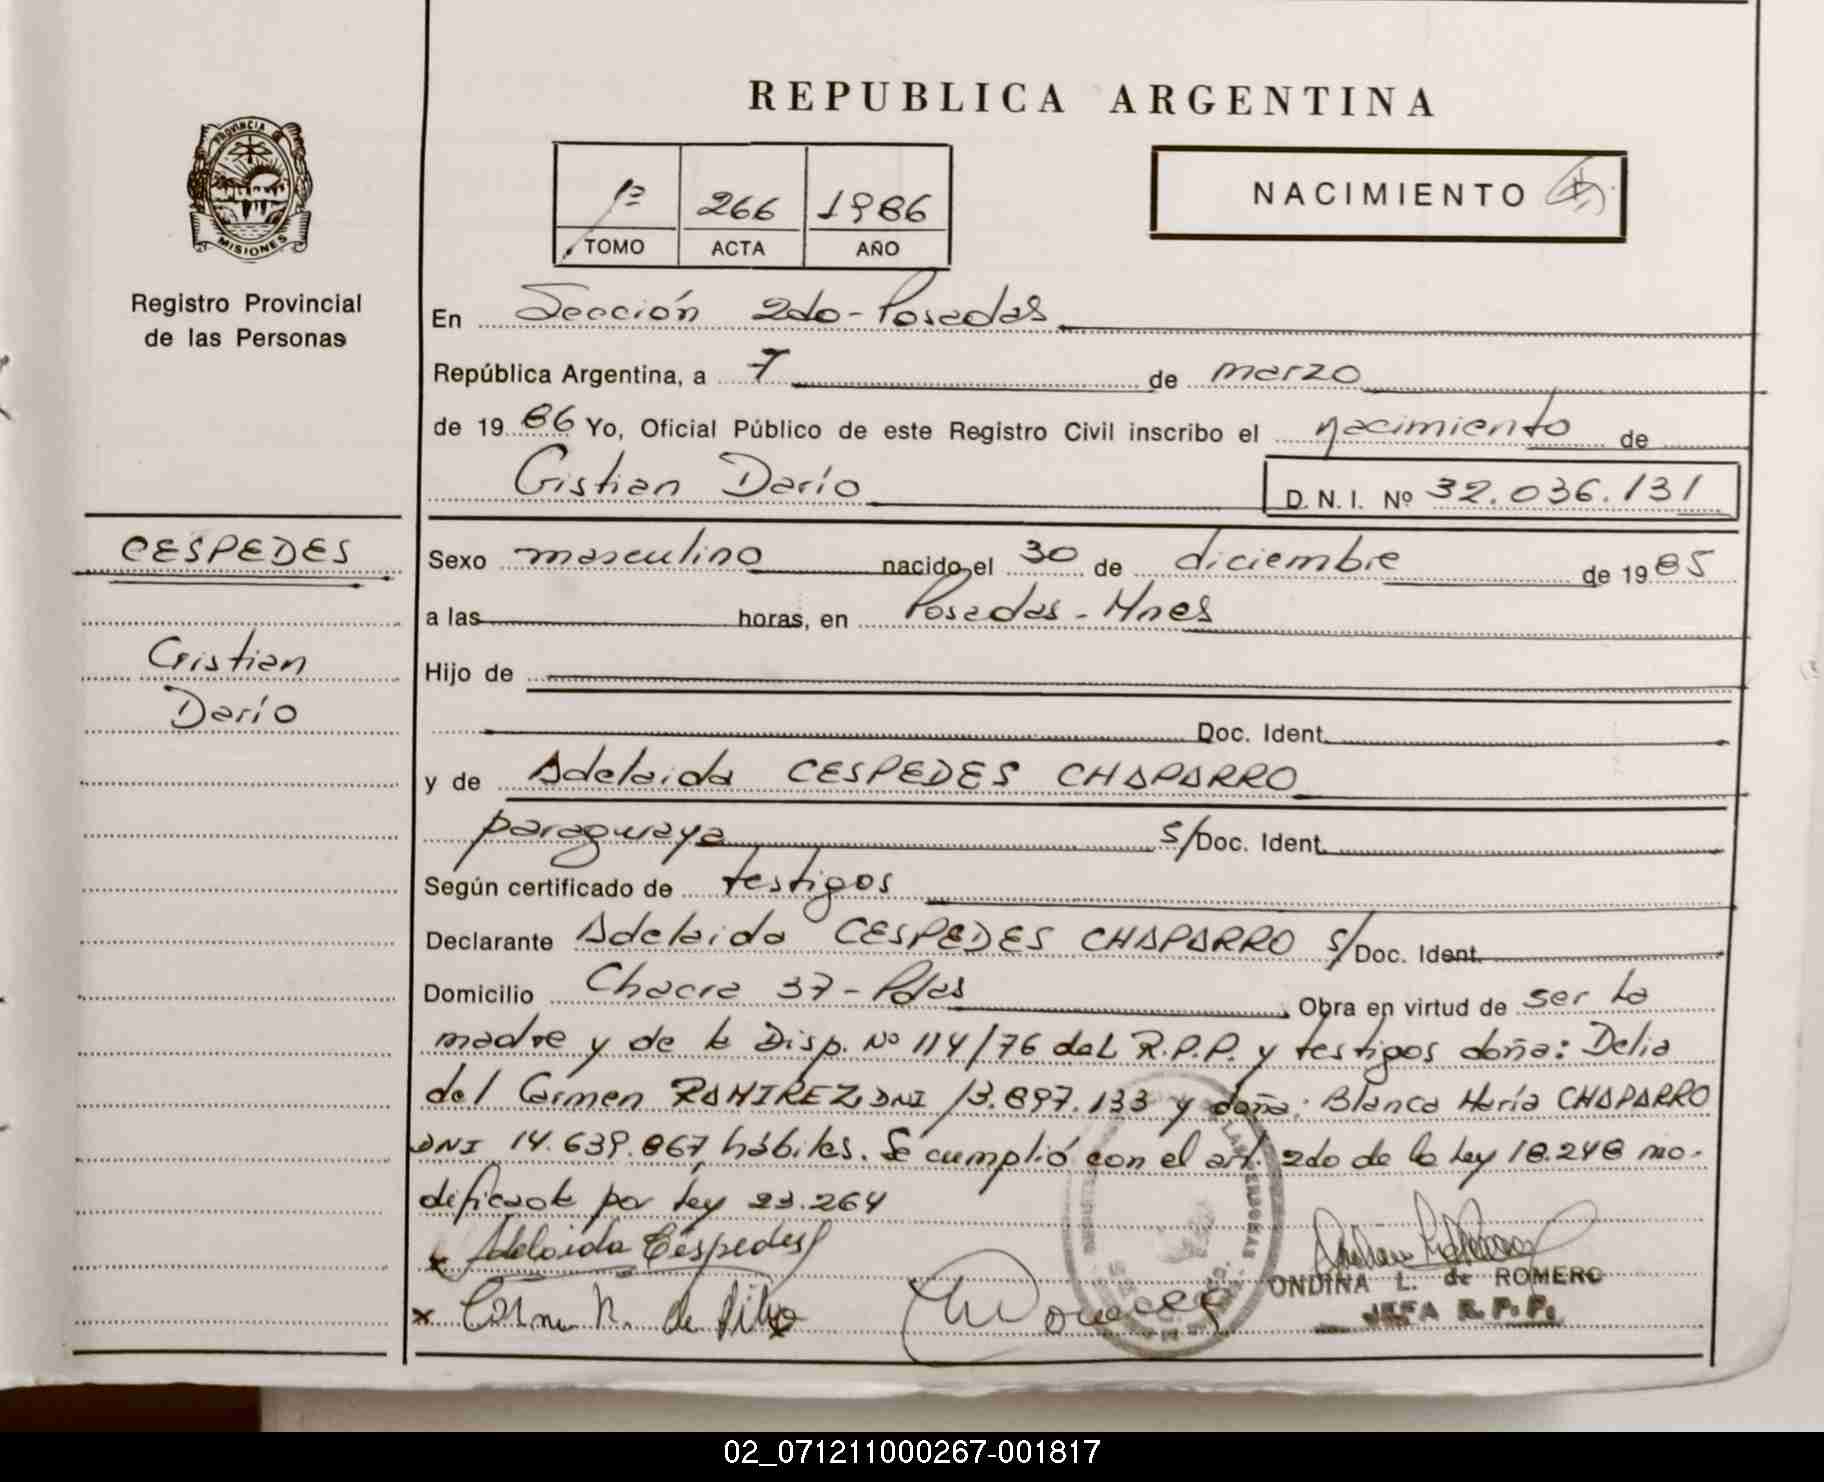 REPUBLICA ARGENTINA
PROVINCIA DE
MISIONES
Registro Provincial
de las Personas
1º 266 1986
TOMO ACTA AÑO
NACIMIENTO
En Sección 2do - Posadas
República Argentina, a 7 de marzo
de 1986 Yo, Oficial Público de este Registro Civil inscribo el nacimiento de
Cistian Darío D. N. I. Nº 32.036.131
CESPEDES
Cristian
Darío
Sexo masculino nacido el 30 de diciembre de 1985
a las horas, en Posadas - Mnes
Hijo de
Doc. Ident.
y de Adelaida CESPEDES CHAPARRO
paraguaya s/Doc. Ident.
Según certificado de testigos
Declarante Adelaida CESPEDES CHAPARRO s/Doc. Ident.
Domicilio Chacra 37 - Pdas Obra en virtud de ser la
madre y de la Disp. Nº 114/76 del R.P.P. y testigos doña: Delia
del Carmen RAMIREZ, DNI 13.897.133 y doña: Blanca María CHAPARRO
DNI 14.639.867 hábiles. Se cumplió con el art. 2do de la Ley 18.248 mo-
dificada por Ley 23.264
x Adelaida Céspedes
x Carmen R. de Silva
ONDINA L. de ROMERO
JEFA R. P. P.
02_071211000267-001817